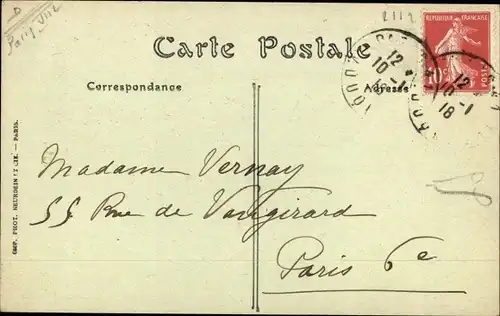 D
Paris VII e
2112
Carte Postale
Correspondance
Adresse
REPUBLIQUE FRANÇAISE
10c
POSTES
12
10-1
18
12
10-1
18
Madame Vernay
55 Rue de Vaugirard
Paris 6e
IMP. PHOT. NEURDEIN ET CIE. — PARIS.